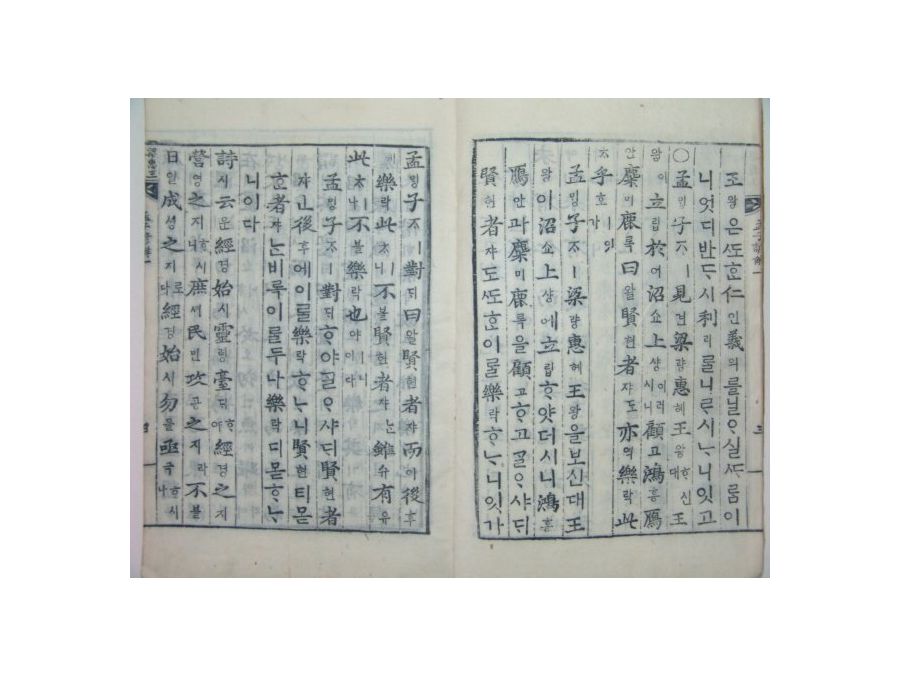 王왕은ᄯᅩᄒᆞᆫ仁인義의를닐ᄋᆞ실ᄯᆞᄅᆞᆷ이
니엇디반ᄃᆞ시利리ᄅᆞᆯ니ᄅᆞ시ᄂᆞ니잇고
○孟ᄆᆡᆼ子ᄌᆞㅣ見견梁량惠혜王왕ᄒᆞ신대王
왕이立립於어沼쇼上샹이러시니顧고鴻홍鴈
안麋미鹿록曰왈賢현者쟈도亦역樂락此
ᄎᆞ乎호ㅣ잇가
孟ᄆᆡᆼ子ᄌᆞㅣ梁량惠혜王왕을보신대王
왕이沼쇼上샹에立립ᄒᆞ얏더시니鴻홍
鴈안과麋미鹿록을顧고ᄒᆞ고ᄀᆞᆯᄋᆞ샤ᄃᆡ
賢현者쟈도ᄯᅩᄒᆞᆫ이ᄅᆞᆯ樂락ᄒᆞᄂᆞ니잇가
孟ᄆᆡᆼ子ᄌᆞㅣ對ᄃᆡ曰왈賢현者쟈而이後후
樂락此ᄎᆞㅣ니不불賢현者쟈ᄂᆞᆫ雖슈有유
此ᄎᆞㅣ나不불樂락也야ㅣ니이다
孟ᄆᆡᆼ子ᄌᆞㅣ對ᄃᆡᄒᆞ야ᄀᆞᆯᄋᆞ샤ᄃᆡ賢현者
쟈ᄂᆞᆫ後후에이ᄅᆞᆯ樂락ᄒᆞᄂᆞ니賢현티몯
ᄒᆞᆫ者쟈ᄂᆞᆫ비록이ᄅᆞᆯ두나樂락디몯ᄒᆞᄂᆞ
니이다
詩시云운經경始시靈령臺ᄃᆡᄒᆞ야經경之지
營영之지ᄒᆞ시니庶셔民민攻공之지라不불
日일成셩之지로다經경始시勿믈亟극ᄒᆞ시나